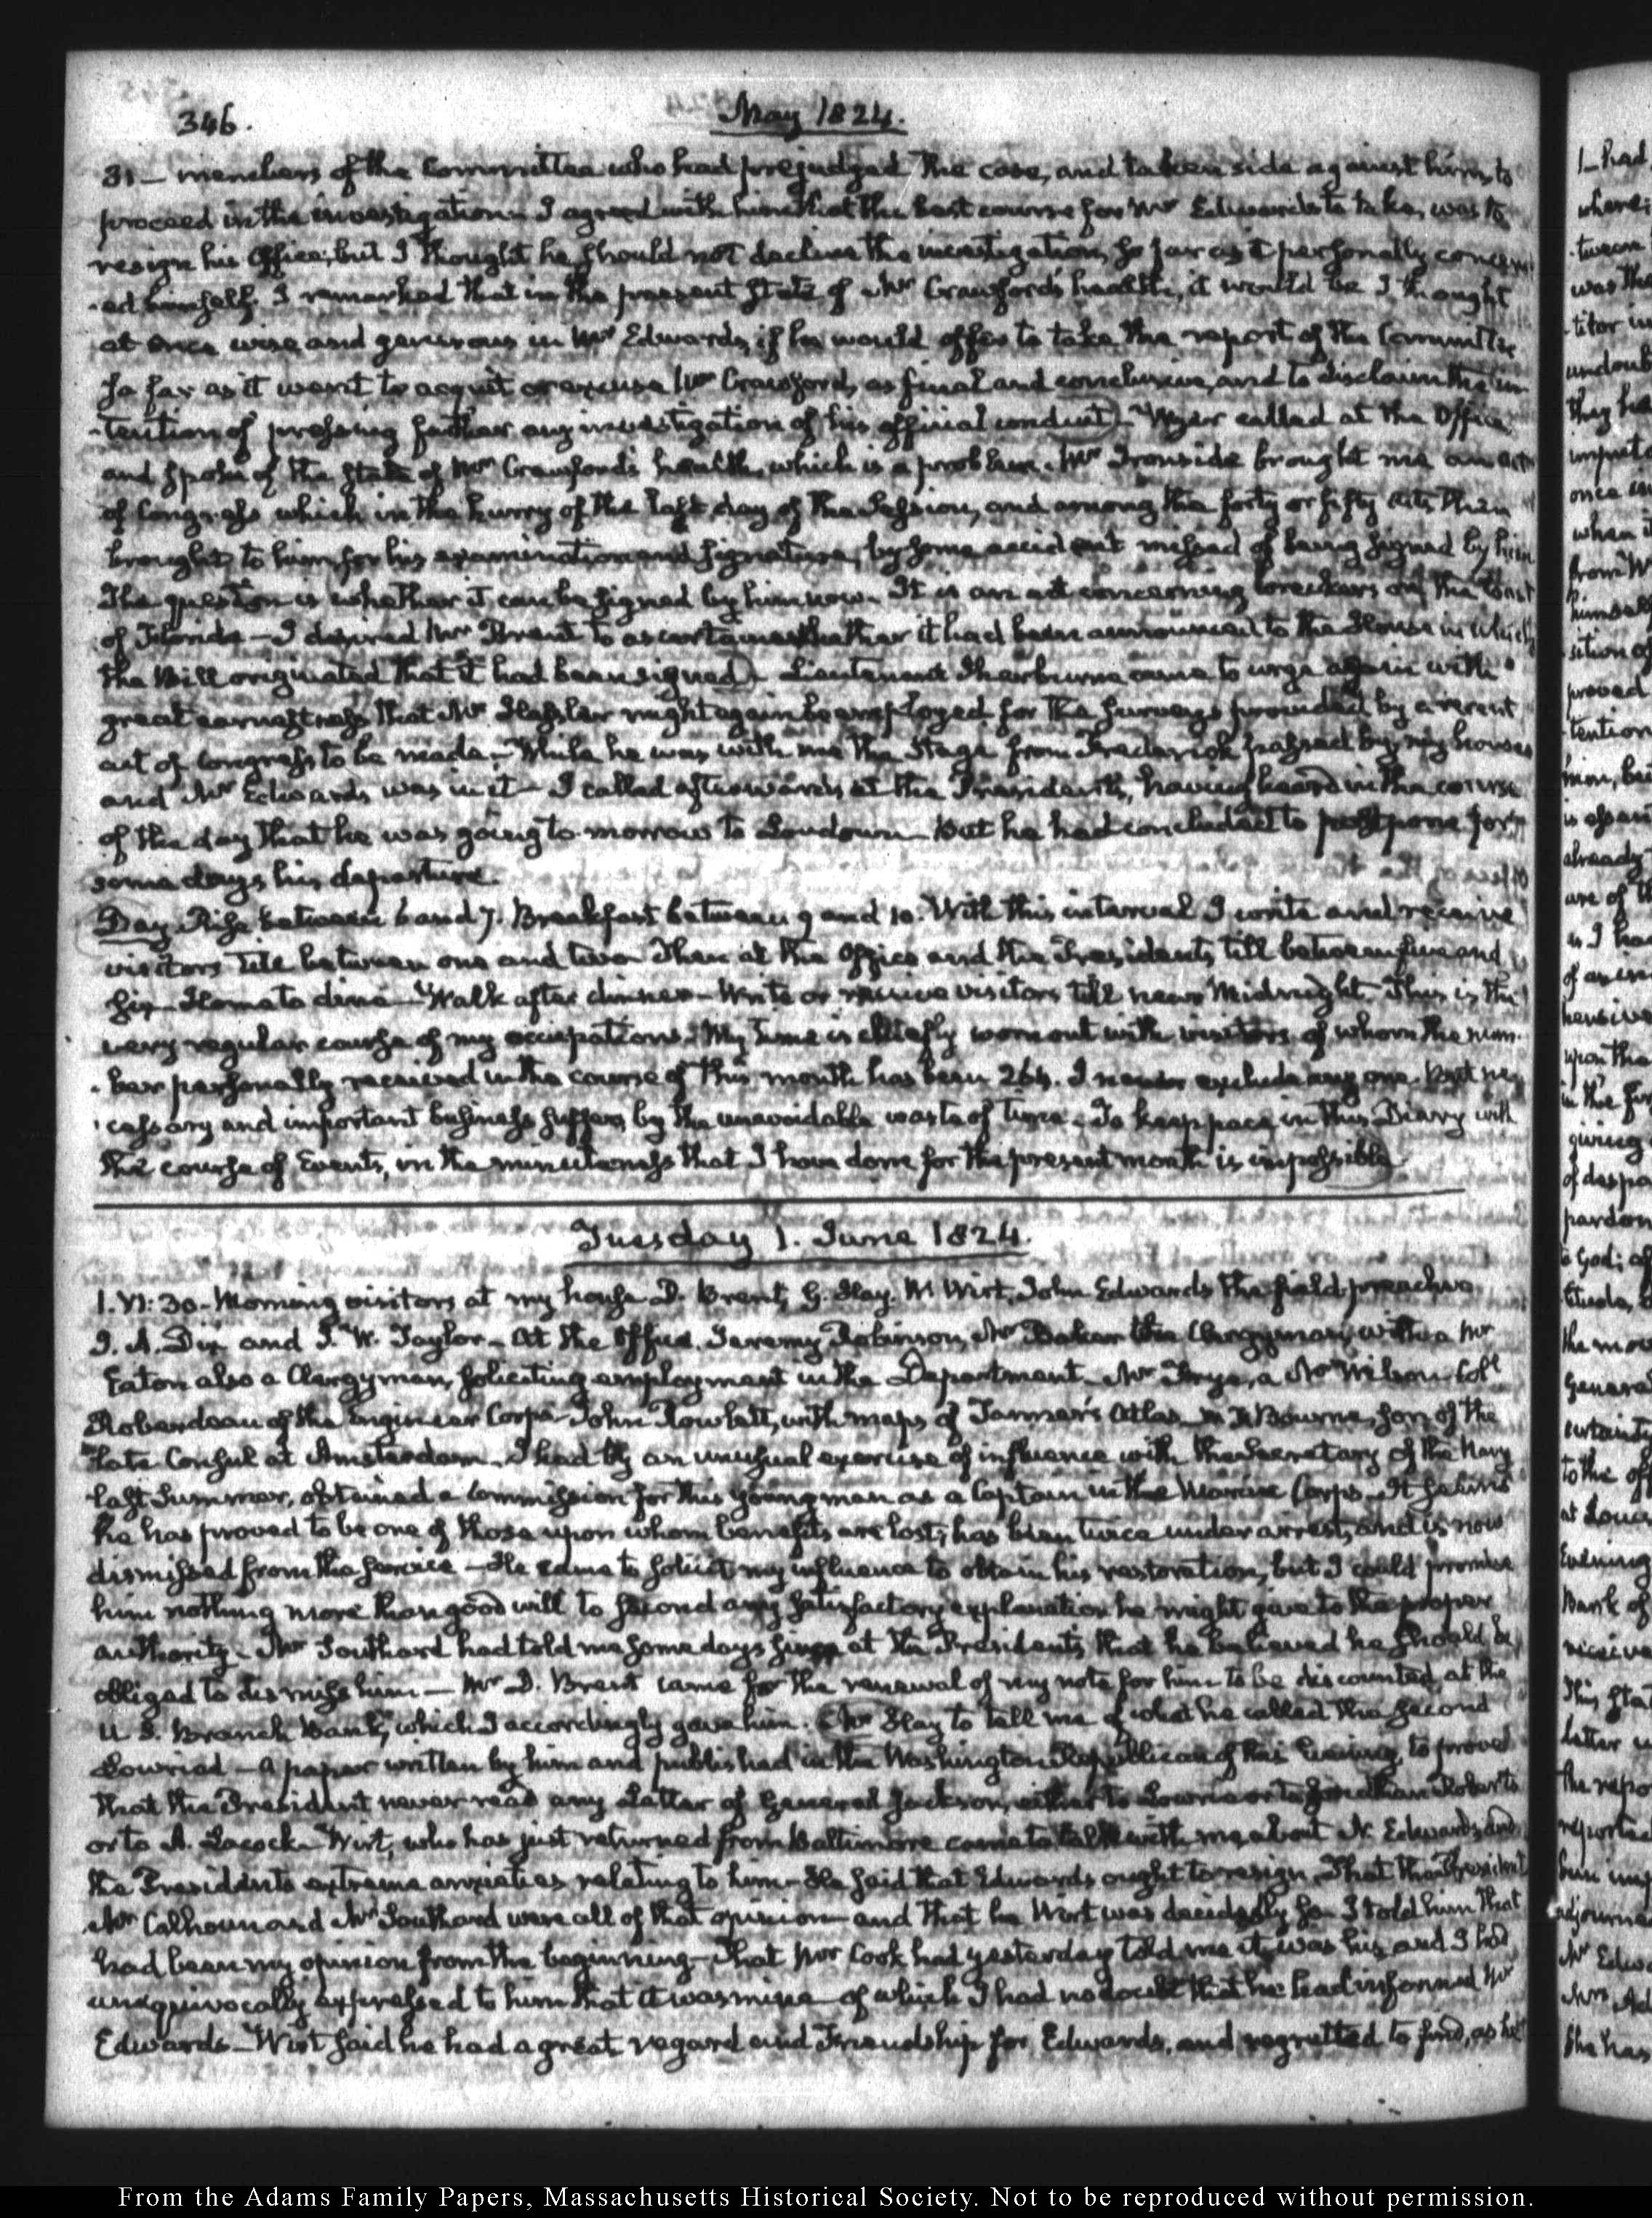 346.
May 1824.
31— members of the Committee who had prejudged the case, and taken side against him, to
proceed in the investigation. I agreed with him that the best course for Mr Edwards to take, was to
resign his Office; but I thought he should not decline the investigation, so far as it personally concern-
-ed himself. I remarked that in the present state of Mr Crawford's health, it would be I thought
at once wise and generous in Mr Edwards, if he would offer to take the report of the Committee
so far as it went to acquit or excuse Mr Crawford, as final and conclusive, and to disclaim the in-
-tention of pressing further any investigation of his official conduct— Wyer called at the Office
and spoke of the state of Mr Crawford's health, which is a problem. Mr Ironside brought me an act
of Congress which in the hurry of the last day of the Session, and among the forty or fifty acts then
brought to him for his examination and signature, by some accident missed of being signed by him
The question is whether it can be signed by him now. It is an act concerning wreckers on the Coast
of Florida— I desired Mr Brent to ascertain whether it had been announced to the House in which
the Bill originated that it had been signed— Lieutenant Sherburne came to urge again with
great earnestness that Mr Hassler might again be employed for the surveys provided by a recent
act of Congress to be made.— While he was with me the Stage from Frederick passed by my house
and Mr Edwards was in it— I called afterwards at the President's, having heard in the course
of the day that he was going to-morrow to Loudoun— But he had concluded to postpone for
some days his departure.
Day Rise between 6 and 7. Breakfast between 9 and 10. With this interval I write and receive
visitors till between one and two— Then at the Office and the President's till between five and
six— Home to dine— Walk after dinner— Write or receive visitors till near Midnight. This is the
very regular course of my occupations. My time is chiefly worn out with visitors of whom the num-
-ber personally received in the course of this month has been 264. I never exclude any one. But ne-
-cessary and important business suffers by the unavoidable waste of time. To keep pace in this Diary with
the course of Events, in the minuteness that I have done for the present month is impossible
Tuesday 1. June 1824.
1. VI:30. Morning visitors at my house D. Brent, G. Hay. W Wirt, John Edwards the field preacher
J. A. Dix and J. W. Taylor— At the Office. Jeremy Robinson, Mr Baker the Clergyman, with a Mr
Eaton also a Clergyman, soliciting employment in the Department— Mr Frye, a Mr Wilson Coll
Roberdeau of the Engineer Corps— John Rowlett, with maps of Tanner's Atlas, Bourne, son of the
late Consul at Amsterdam. I had by an unusual exercise of influence with the Secretary of the Navy
last Summer, obtained a Commission for this young man as a Captain in the Marine Corps— It seems
he has proved to be one of those upon whom benefits are lost; has been twice under arrest, and is now
dismissed from the service— He came to solicit my influence to obtain his restoration, but I could promise
him nothing more than good will to second any satisfactory explanation he might give to the proper
authority. Mr Southard had told me some days since at the President's that he believed he should be
obliged to dismiss him— Mr D. Brent came for the renewal of my note for him to be discounted at the
U. S. Branch Bank, which I accordingly gave him. Mr Hay to tell me of what he called the second
Lowriad— a paper written by him and published in the Washington Republican of this Evening, to prove
that the President never read any Letter of General Jackson, either to Lowrie or to Jonathan Roberts
or to A. Lacock— Wirt, who has just returned from Baltimore came to talk with me about N. Edwards, and
the President's extreme anxieties relating to him— He said that Edwards ought to resign. That the President
Mr Calhoun and Mr Southard were all of that opinion— and that he Wirt was decidedly so— I told him that
had been my opinion from the beginning— That Mr Cook had yesterday told me it was his, and I had
unequivocally expressed to him that it was mine— of which I had no doubt that he had informed Mr
Edwards— Wirt said he had a great regard and Friendship for Edwards, and regretted to find, as he
From the Adams Family Papers, Massachusetts Historical Society. Not to be reproduced without permission.